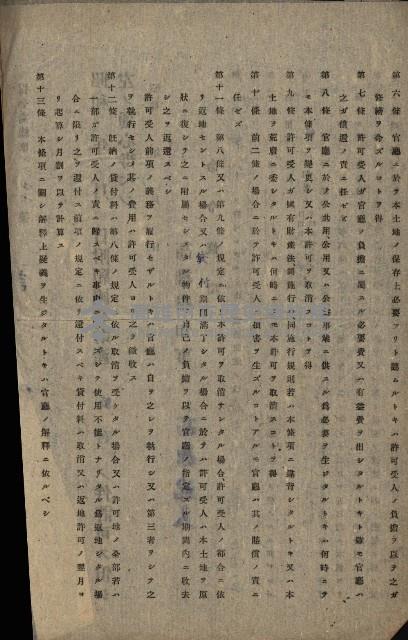 第六條 官廳ニ於テ本土地ノ保存上必要アリト認ムルトキハ許可受人ノ負擔ヲ以テ之ガ
修繕ヲ命ズルコトヲ得
第七條 許可受人ガ官廳ノ負擔ニ屬スル必要費又ハ有益費ヲ出シタルトキト雖モ官廳ハ
之ガ償還ノ責ニ任ゼズ
第八條 官廳ニ於テ公共用公用又ハ公益事業ニ供スル爲必要ヲ生ジタルトキハ何時ニテ
モ本條項ヲ變更シ又ハ本許可ヲ取消スコトヲ得
第九條 許可受人ガ國有財產法同施行令同施行規則若ハ本條項ニ違背シタルトキ又ハ本
土地ヲ荒廢ニ委シタルトキハ何時ニテモ本許可ヲ取消スコトヲ得
第十條 前二條ノ場合ニ於テ許可受人ニ損害ヲ生ズルコトアルモ官廳ハ其ノ賠償ノ責ニ
任ゼズ
第十一條 第八條又ハ第九條ノ規定ニ依リ本許可ヲ取消サレタル場合許可受人ノ都合ニ依
リ返地セントスル場合又ハ貸付期間滿了シタル場合ニ於テハ許可受人ハ本土地ヲ原
狀ニ復シ之ニ附屬セシメタル物件ハ自己ノ負擔ヲ以テ官廳ノ指定スル期間內ニ收去
シ之ヲ返還スベシ
許可受人前項ノ義務ヲ履行セザルトキハ官廳ハ自ラ之ヲ執行シ又ハ第三者ヲシテ之
ヲ執行セシメ其ノ費用ハ許可受人ヨリ之ヲ徵收ス
第十二條 旣納ノ貸付料ハ第八條ノ規定ニ依ル取消ヲ受ケタル場合又ハ許可地ノ全部若ハ
一部ガ許可受人ノ責ニ歸スベキ事由ニ ズシテ使用不能トナリタル爲返地シタル場
合ニ限リ之ヲ還付ス前項ノ規定ニ依リ還付スベキ貸付料ハ取消又ハ返地許可ノ翌月ヨ
リ起算シ月割ヲ以テ計算ス
第十三條 本條項ニ關シ解釋上疑義ヲ生ジタルトキハ官廳ノ解釋ニ依ルベシ